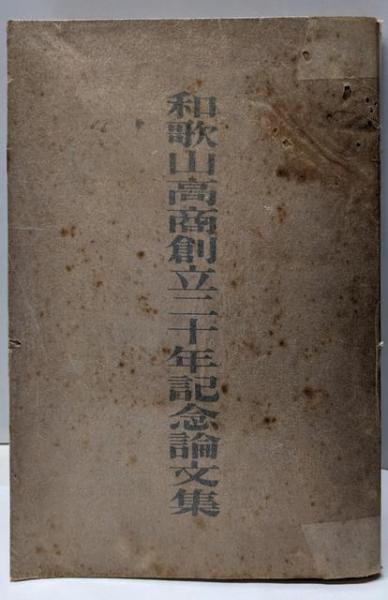 和歌山高商創立二十年記念論文集